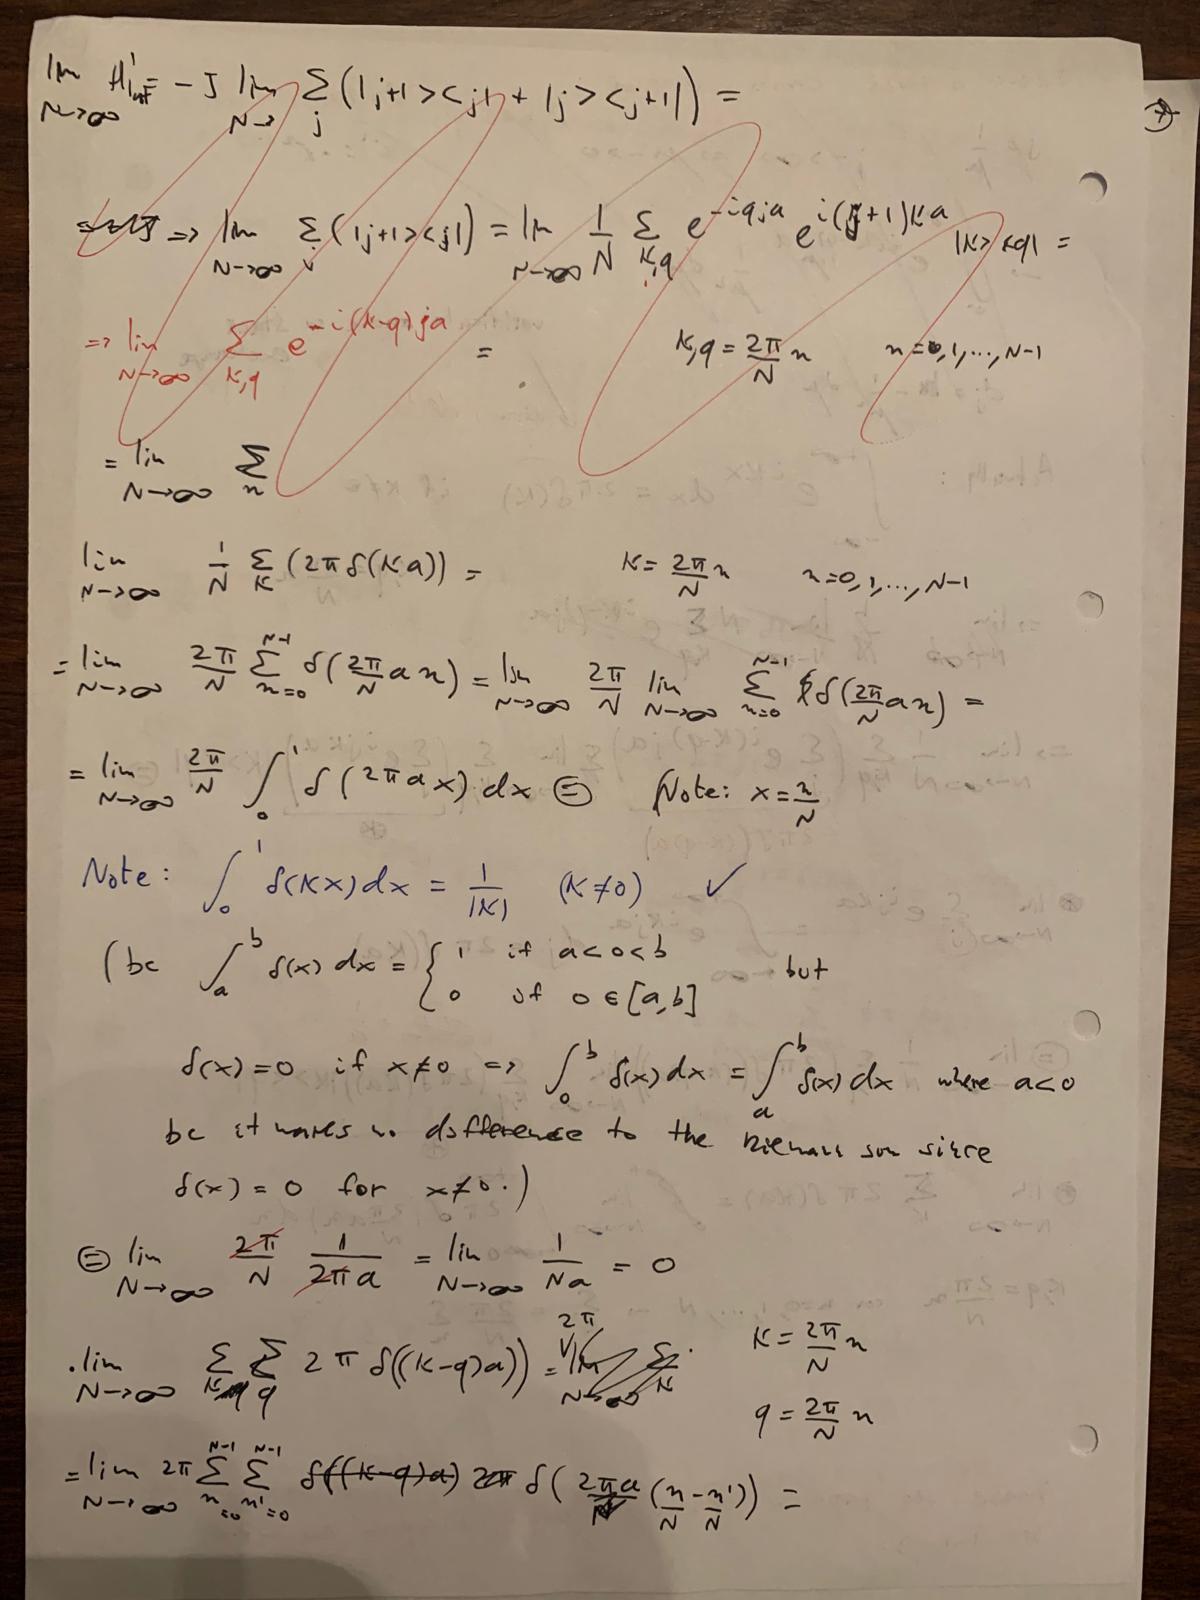 lim N→∞ H'int = - J lim N→ Σ_j (|j+1><j| + |j><j+1|) =
7
=> lim N→∞ Σ (|j+1><j|) = lim N→∞ 1/N Σ_{K,q} e^{-iqja} e^{i(j+1)Ka} |K><q| =
=> lim N→∞ Σ_{K,q} e^{-i(k-q)ja} = K,q = 2π/N n n=0,1,...,N-1
= lim N→∞ Σ_n
lim N→∞ 1/N Σ_K (2π δ(Ka)) = K = 2π/N n n=0,1,...,N-1
= lim N→∞ 2π/N Σ_{n=0}^{N-1} δ(2π/N a n) = lim N→∞ 2π/N lim N→∞ Σ_{n=0}^{N-1} δ(2π/N a n) =
= lim N→∞ 2π/N ∫_0^1 δ(2π a x) dx ⊜ Note: x = n/N
Note: ∫_0^1 δ(Kx) dx = 1/|K| (K≠0) ✓
(bc ∫_a^b δ(x) dx = { 1 if a<0<b but
0 if 0 ∈ [a,b]
δ(x)=0 if x≠0 => ∫_0^b δ(x) dx = ∫_a^b δ(x) dx where a<0
bc it makes no difference to the Riemann sum since
δ(x) = 0 for x≠0.)
⊜ lim N→∞ 2π/N 1/2πa = lim N→∞ 1/Na = 0
. lim N→∞ Σ_K Σ_q 2π δ((k-q)a) = K = 2π/N n
q = 2π/N n
= lim N→∞ 2π Σ_{n=0}^{N-1} Σ_{n'=0}^{N-1} δ((k-q)a) 2π δ(2πa (n/N - n'/N)) =